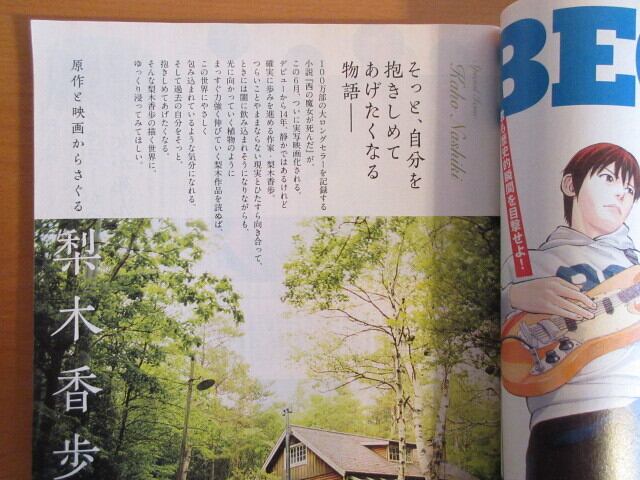 BE
の歴史的瞬間を目撃せよ!
Special Issue
Kaho Nashiki
そっと、自分を
抱きしめて
あげたくなる
物語——
100万部の大ロングセラーを記録する
小説『西の魔女が死んだ』が、
この6月、ついに実写映画化される。
デビューから14年、静かではあるけれど
確実に歩みを進める作家・梨木香歩。
つらいことやままならない現実とひたすら向き合って、
ときには闇に飲み込まれそうになりながらも、
光に向かっていく植物のように
まっすぐ力強く伸びていく梨木作品を読めば、
この世界にやさしく
包み込まれているような気分になれる。
そして過去の自分をそっと、
抱きしめてあげたくなる。
そんな梨木香歩の描く世界に、
ゆっくり浸ってみてほしい。
原作と映画からさぐる
梨木香歩